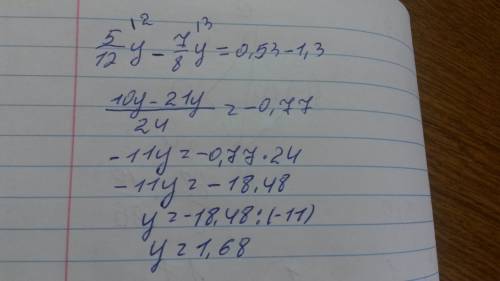 5/12 y \2 - 7/8 y \3 = 0,53-1,3
10y-21y/24 = -0,77
-11y=-0,77·24
-11y=-18,48
y=-18,48:(-11)
y=1,68